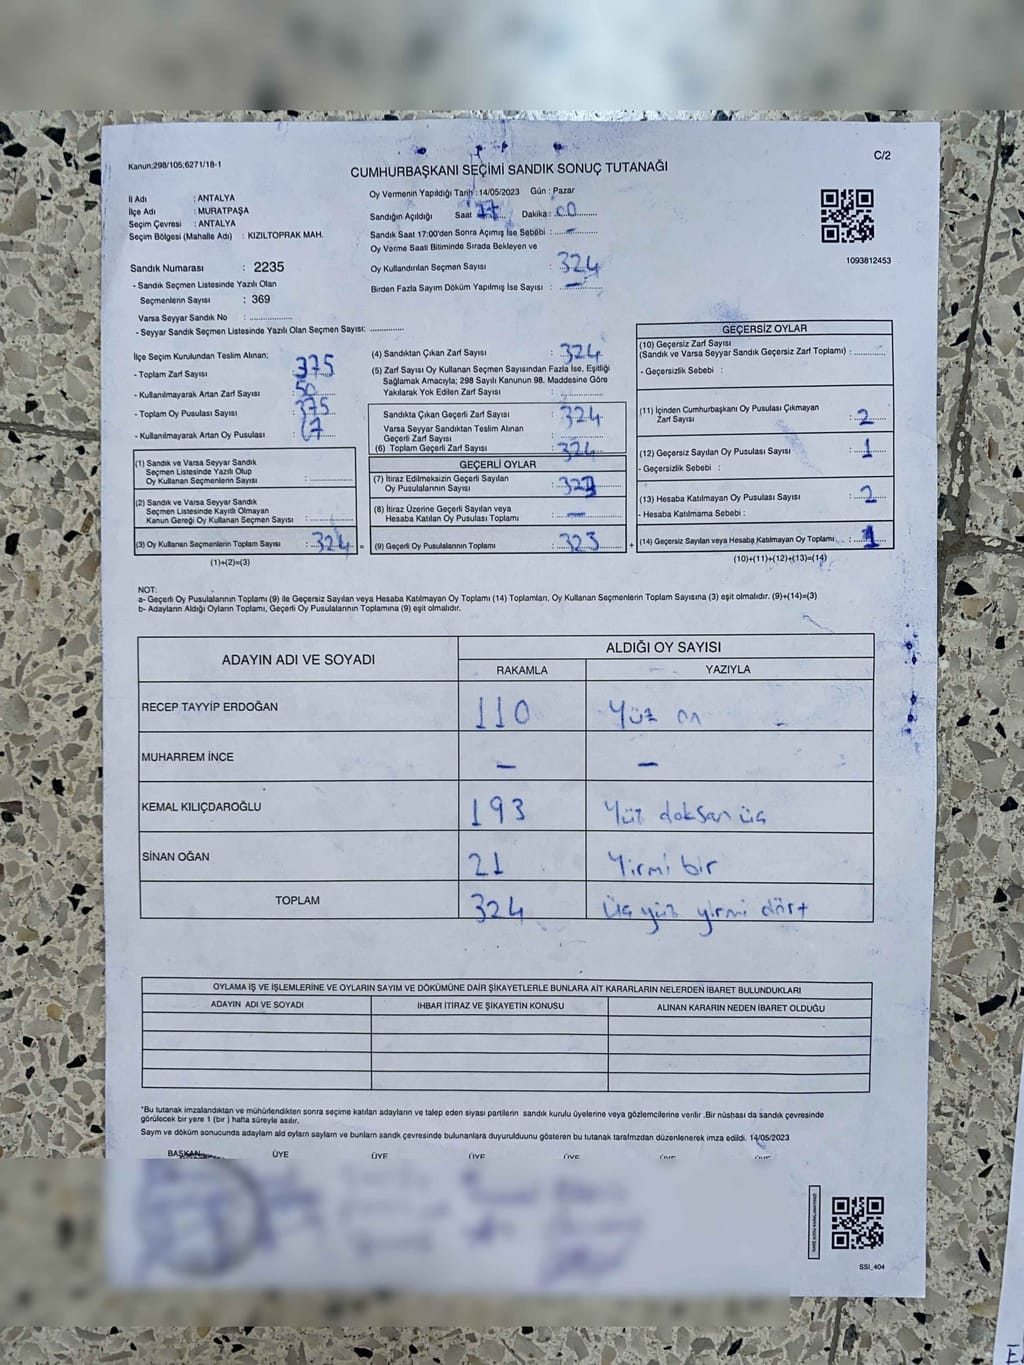 Kanun:298/105;6271/18-1
C/2
CUMHURBAŞKANI SEÇİMİ SANDIK SONUÇ TUTANAĞI
İl Adı : ANTALYA
İlçe Adı : MURATPAŞA
Seçim Çevresi : ANTALYA
Seçim Bölgesi (Mahalle Adı) : KIZILTOPRAK MAH.
Sandık Numarası : 2235
- Sandık Seçmen Listesinde Yazılı Olan
Seçmenlerin Sayısı : 369
Varsa Seyyar Sandık No : ..............
- Seyyar Sandık Seçmen Listesinde Yazılı Olan Seçmen Sayısı: ............
Oy Vermenin Yapıldığı Tarih : 14/05/2023 Gün : Pazar
Sandığın Açıldığı Saat Dakika : 00
Sandık Saat 17:00'den Sonra Açımış İse Sebebi : —
Oy Verme Saati Bitiminde Sırada Bekleyen ve
Oy Kullandırılan Seçmen Sayısı : 324
Birden Fazla Sayım Döküm Yapılmış İse Sayısı : —
1093812453
İlçe Seçim Kurulundan Teslim Alınan;
- Toplam Zarf Sayısı : 375
- Kullanılmayarak Artan Zarf Sayısı : 50
- Toplam Oy Pusulası Sayısı : 375
- Kullanılmayarak Artan Oy Pusulası :
(1) Sandık ve Varsa Seyyar Sandık
Seçmen Listesinde Yazılı Olup
Oy Kullanan Seçmenlerin Sayısı : ............
(2) Sandık ve Varsa Seyyar Sandık
Seçmen Listesinde Kayıtlı Olmayan
Kanun Gereği Oy Kullanan Seçmen Sayısı : ............
(3) Oy Kullanan Seçmenlerin Toplam Sayısı : 324 =
(1)+(2)=(3)
(4) Sandıktan Çıkan Zarf Sayısı : 324
(5) Zarf Sayısı Oy Kullanan Seçmen Sayısından Fazla İse, Eşitliği
Sağlamak Amacıyla; 298 Sayılı Kanunun 98. Maddesine Göre
Yakılarak Yok Edilen Zarf Sayısı : ............
Sandıkta Çıkan Geçerli Zarf Sayısı : 324
Varsa Seyyar Sandıktan Teslim Alınan
Geçerli Zarf Sayısı : ............
(6) Toplam Geçerli Zarf Sayısı : 324
GEÇERLİ OYLAR
(7) İtiraz Edilmeksizin Geçerli Sayılan
Oy Pusulalarının Sayısı : 323
(8) İtiraz Üzerine Geçerli Sayılan veya
Hesaba Katılan Oy Pusulası Toplamı : —
(9) Geçerli Oy Pusulalarının Toplamı : 323 +
GEÇERSİZ OYLAR
(10) Geçersiz Zarf Sayısı
(Sandık ve Varsa Seyyar Sandık Geçersiz Zarf Toplamı) : ............
- Geçersizlik Sebebi :
(11) İçinden Cumhurbaşkanı Oy Pusulası Çıkmayan
Zarf Sayısı : 2
(12) Geçersiz Sayılan Oy Pusulası Sayısı : 1
- Geçersizlik Sebebi :
(13) Hesaba Katılmayan Oy Pusulası Sayısı : 2
- Hesaba Katılmama Sebebi :
(14) Geçersiz Sayılan veya Hesaba Katılmayan Oy Toplamı : 1
(10)+(11)+(12)+(13)=(14)
NOT:
a- Geçerli Oy Pusulalarının Toplamı (9) ile Geçersiz Sayılan veya Hesaba Katılmayan Oy Toplamı (14) Toplamları, Oy Kullanan Seçmenlerin Toplam Sayısına (3) eşit olmalıdır. (9)+(14)=(3)
b- Adayların Aldığı Oyların Toplamı, Geçerli Oy Pusulalarının Toplamına (9) eşit olmalıdır.
ADAYIN ADI VE SOYADI
ALDIĞI OY SAYISI
RAKAMLA YAZIYLA
RECEP TAYYİP ERDOĞAN 110 Yüz on
MUHARREM İNCE — —
KEMAL KILIÇDAROĞLU 193 Yüz doksan üç
SİNAN OĞAN 21 Yirmi bir
TOPLAM 324 Üç yüz yirmi dört
OYLAMA İŞ VE İŞLEMLERİNE VE OYLARIN SAYIM VE DÖKÜMÜNE DAİR ŞİKAYETLERLE BUNLARA AİT KARARLARIN NELERDEN İBARET BULUNDUKLARI
ADAYIN ADI VE SOYADI İHBAR İTİRAZ VE ŞİKAYETİN KONUSU ALINAN KARARIN NEDEN İBARET OLDUĞU
*Bu tutanak imzalandıktan ve mühürlendikten sonra seçime katılan adayların ve talep eden siyasi partilerin sandık kurulu üyelerine veya gözlemcilerine verilir .Bir nüshası da sandık çevresinde
görülecek bir yere 1 (bir ) hafta süreyle asılır.
Sayım ve döküm sonucunda adayların ald oyların sayların ve bunların sandk çevresinde bulunanlara duyurulduunu gösteren bu tutanak tarafmzdan düzenlenerek imza edildi. 14/05/2023
BAŞKAN ÜYE ÜYE ÜYE ÜYE ÜYE ÜYE
SSI_404